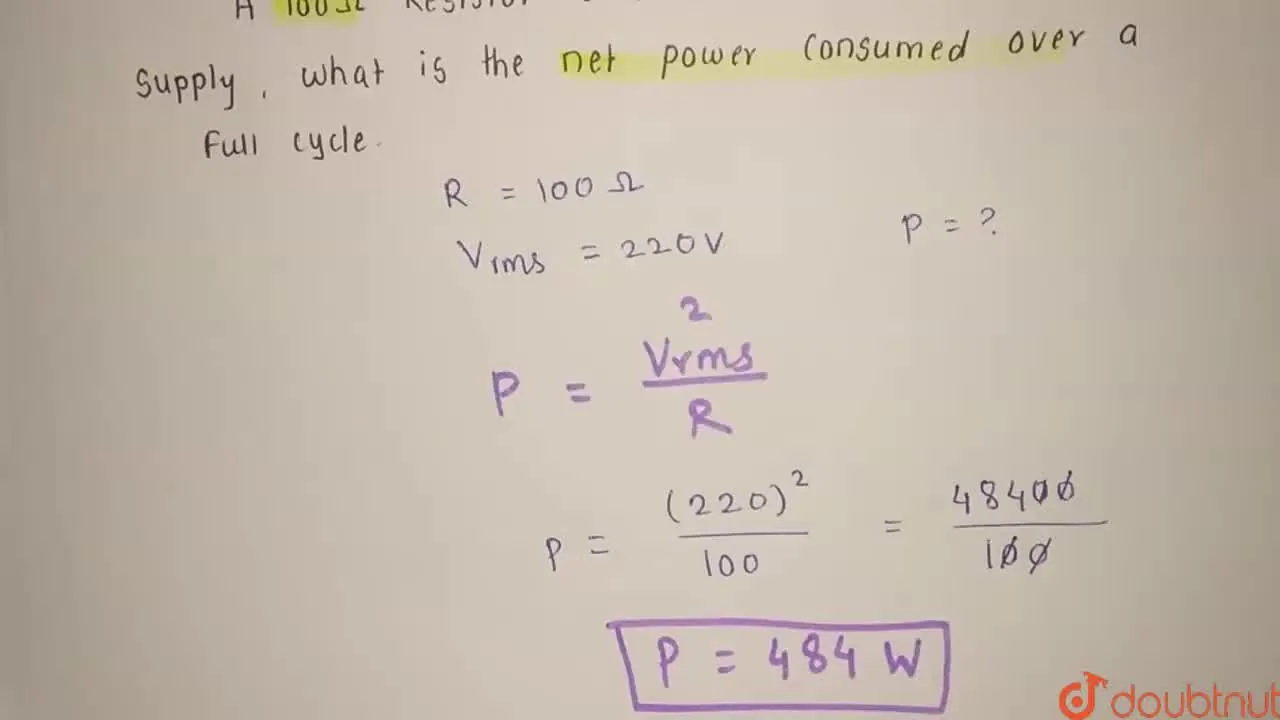 A 100Ω Resistor
Supply, what is the net power consumed over a
full cycle.
R = 100 Ω
Vrms = 220V
P = ?
P = V²rms / R
P = (220)² / 100 = 48400 / 100
P = 484 W
doubtnut